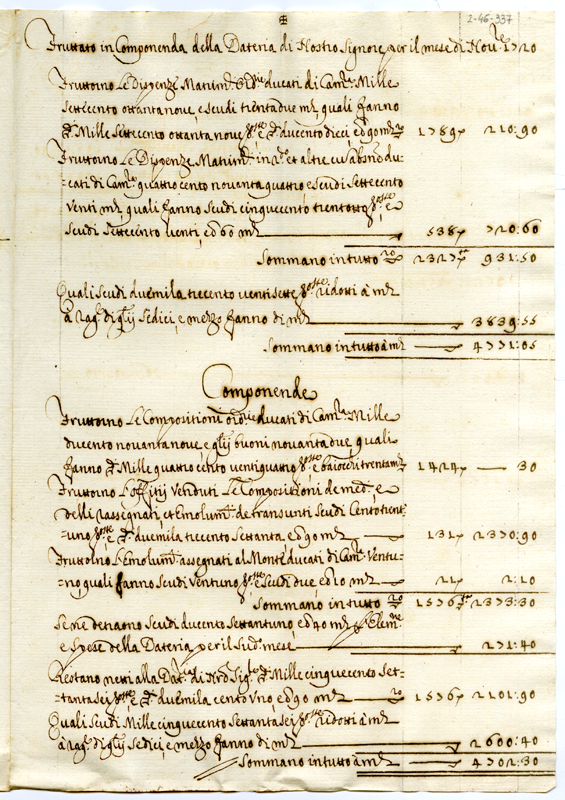 2-46-337
Fruttato in Componenda della Dateria di Nostro Signore, per il mese di Nov.re 1720
Fruttorno Le Dispenze Matrim. ord.rie ducati di Cam.ra Mille
settecento ottanta nove, e scudi trenta due m.ta quali fanno
Mille settecento ottanta nove e ducento dieci, e 90 m.ta 1789 210:90
Fruttorno Le Dispenze Matrim. in et altre du-
-cati di Cam.ra quattro cento novanta quattro e scudi settecento
venti m.ta quali fanno scudi cinquecento trentotto e
scudi settecento venti, e 60 m.ta 538 720:60
Sommano in tutto 2327 931:50
Quali scudi duemila trecento venti sette ridotti à m.ta
à rag.e di glij sedici, e mezzo fanno di m.ta 3839:55
Sommano in tutto à m.ta 4771:05
Componende
Fruttorno Le Compositioni ord.rie ducati di Cam.ra Mille
ducento novanta nove, e glij buoni novanta due, quali
fanno Mille quattro cento ventiquattro e baiocchi trenta m.ta 1424 — 30
Fruttorno L'offitij Venduti Le Compositioni de med. e
delli rassegnati, et Emolum. de transunti Scudi Cento trent-
-uno e duemila trecento settanta, e 90 m.ta 131 2370:90
Fruttorno L'Emolum. assegnati al Monte ducati di Cam.ra Ventu-
-no, quali fanno Scudi Ventuno e scudi due e 10 m.ta 21 2:10
Sommano in tutto 1576 2373:30
Se ne detraono Scudi ducento settantuno, e 40 m.ta Elem.
e Spese della Dateria per il sud. mese 271:40
Restano netti alla Dat.a di N.ro Sig.re Mille cinquecento set-
-tanta sei e duemila cento Uno, e 90 m.ta 1576 2101:90
Quali Scudi Mille cinquecento settanta sei ridotti à m.ta
à rag.e di glij sedici, e mezzo fanno di m.ta 2600:40
Sommano in tutto à m.ta 4702:30